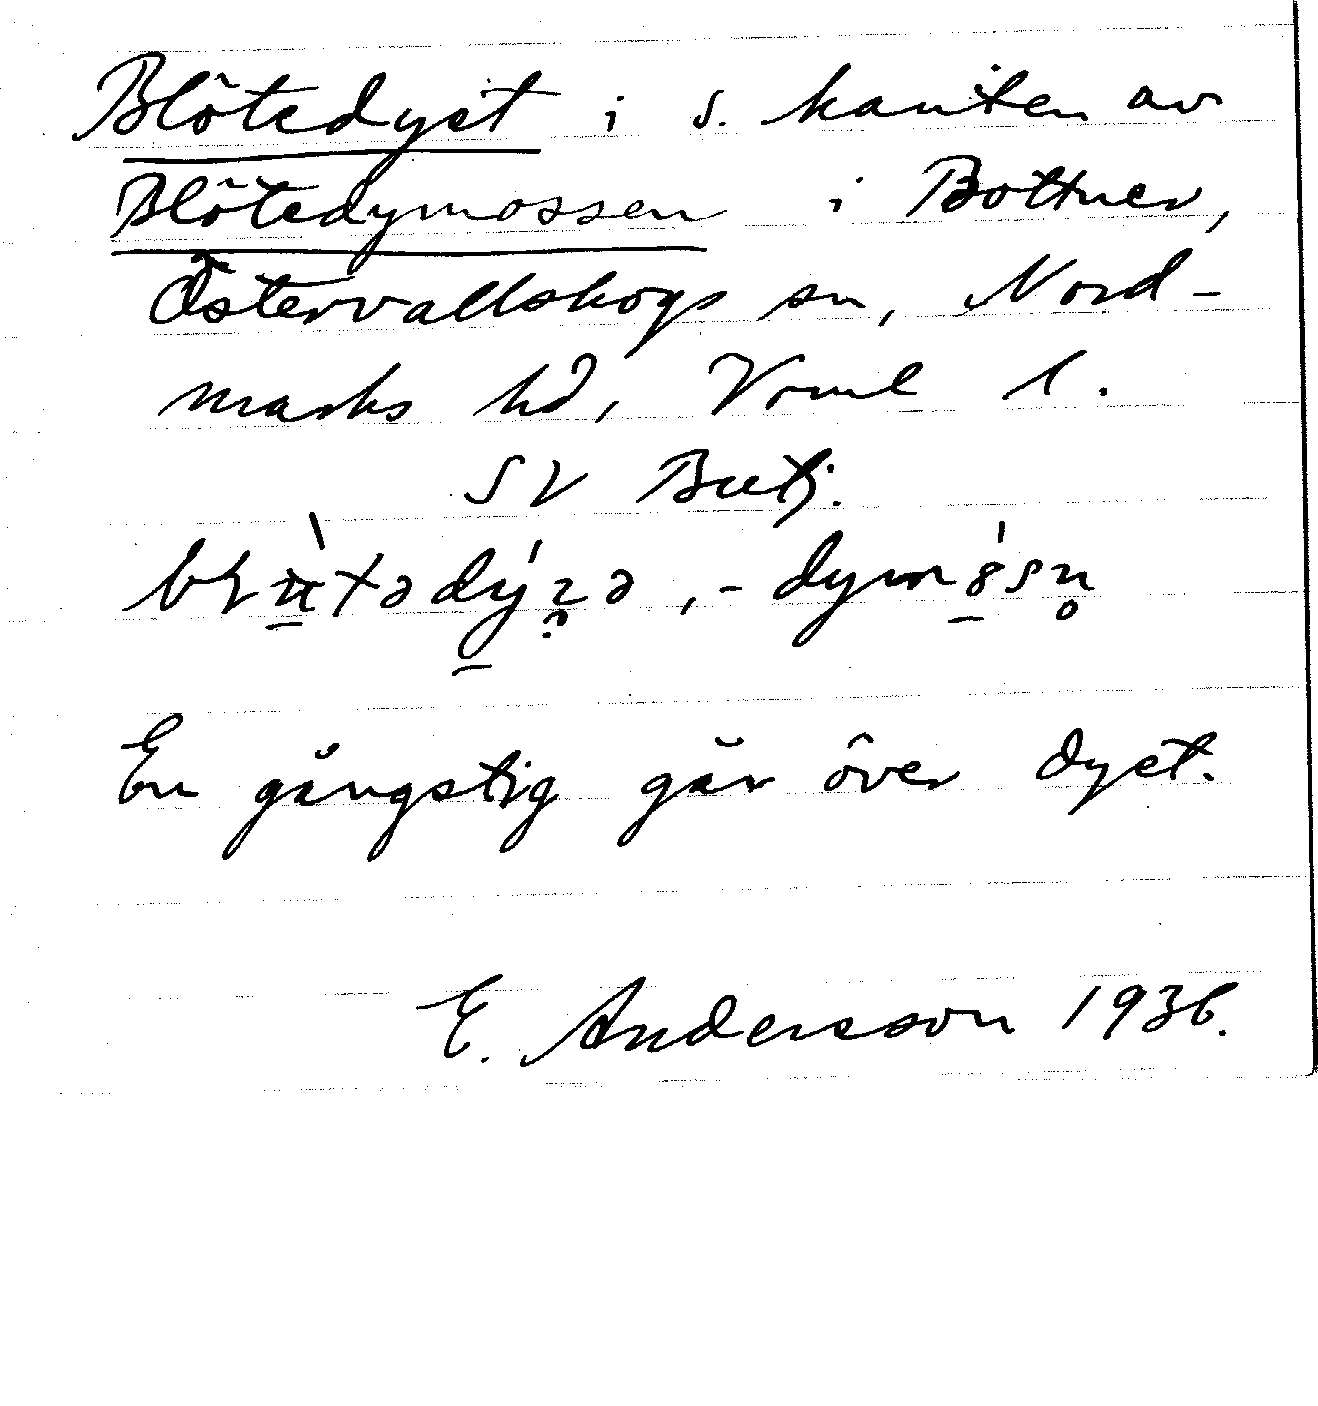 Blötedyet i s. kanten av
Blötedymossen i Bottnen,
Östervallskogs sn, Nord-
marks hd, Vrml l.
SV
En gångstig går över dyet.
E. Andersson 1936.